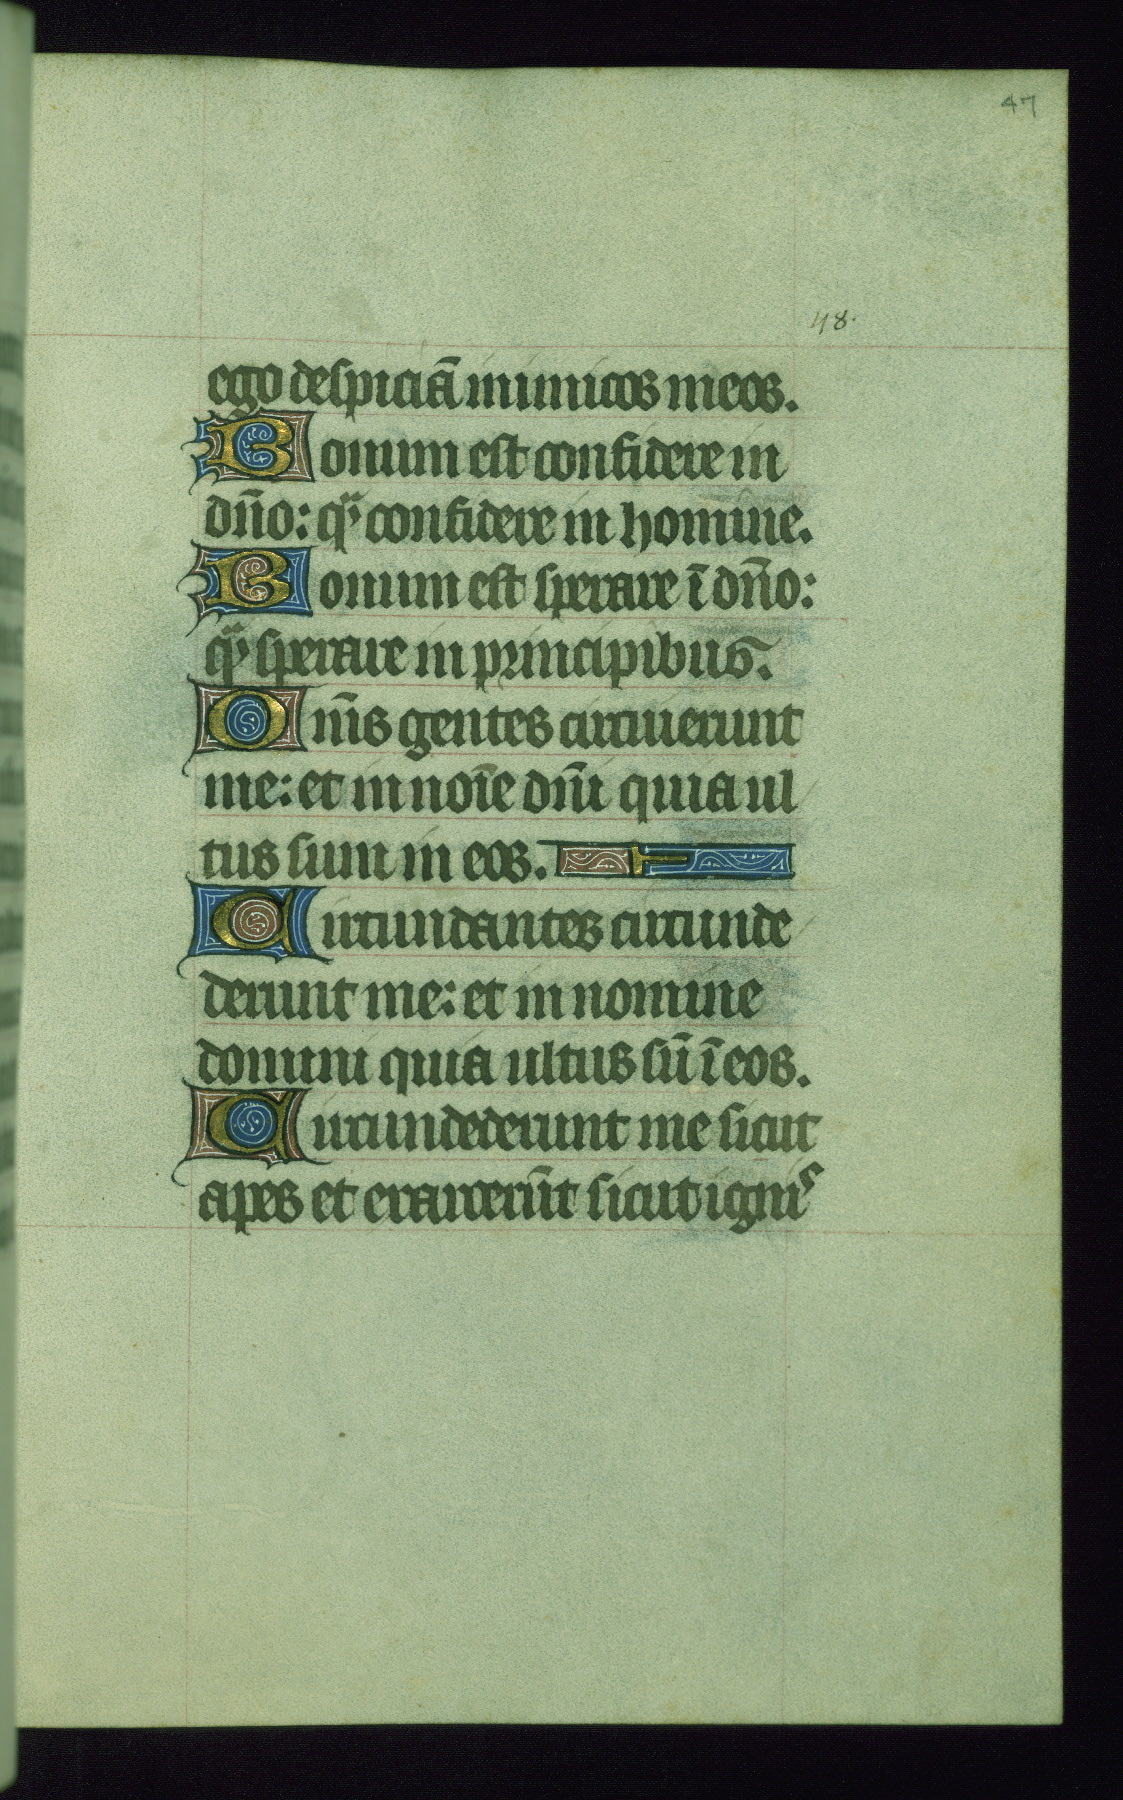 47
48.
ego despiciā inimicos meos.
Bonum est confidere in
dn̄o: qͣ confidere in homine.
Bonum est sperare ī dn̄o:
qͣ sperare in principibus.
Om̄s gentes circuierunt
me: et in noīe dn̄i quia ul
tus sum in eos.
Circundantes circunde
derunt me: et in nomine
domini quia ultus sū ī eos.
Circundederunt me sicut
apes et exarcerūt sicut ignis